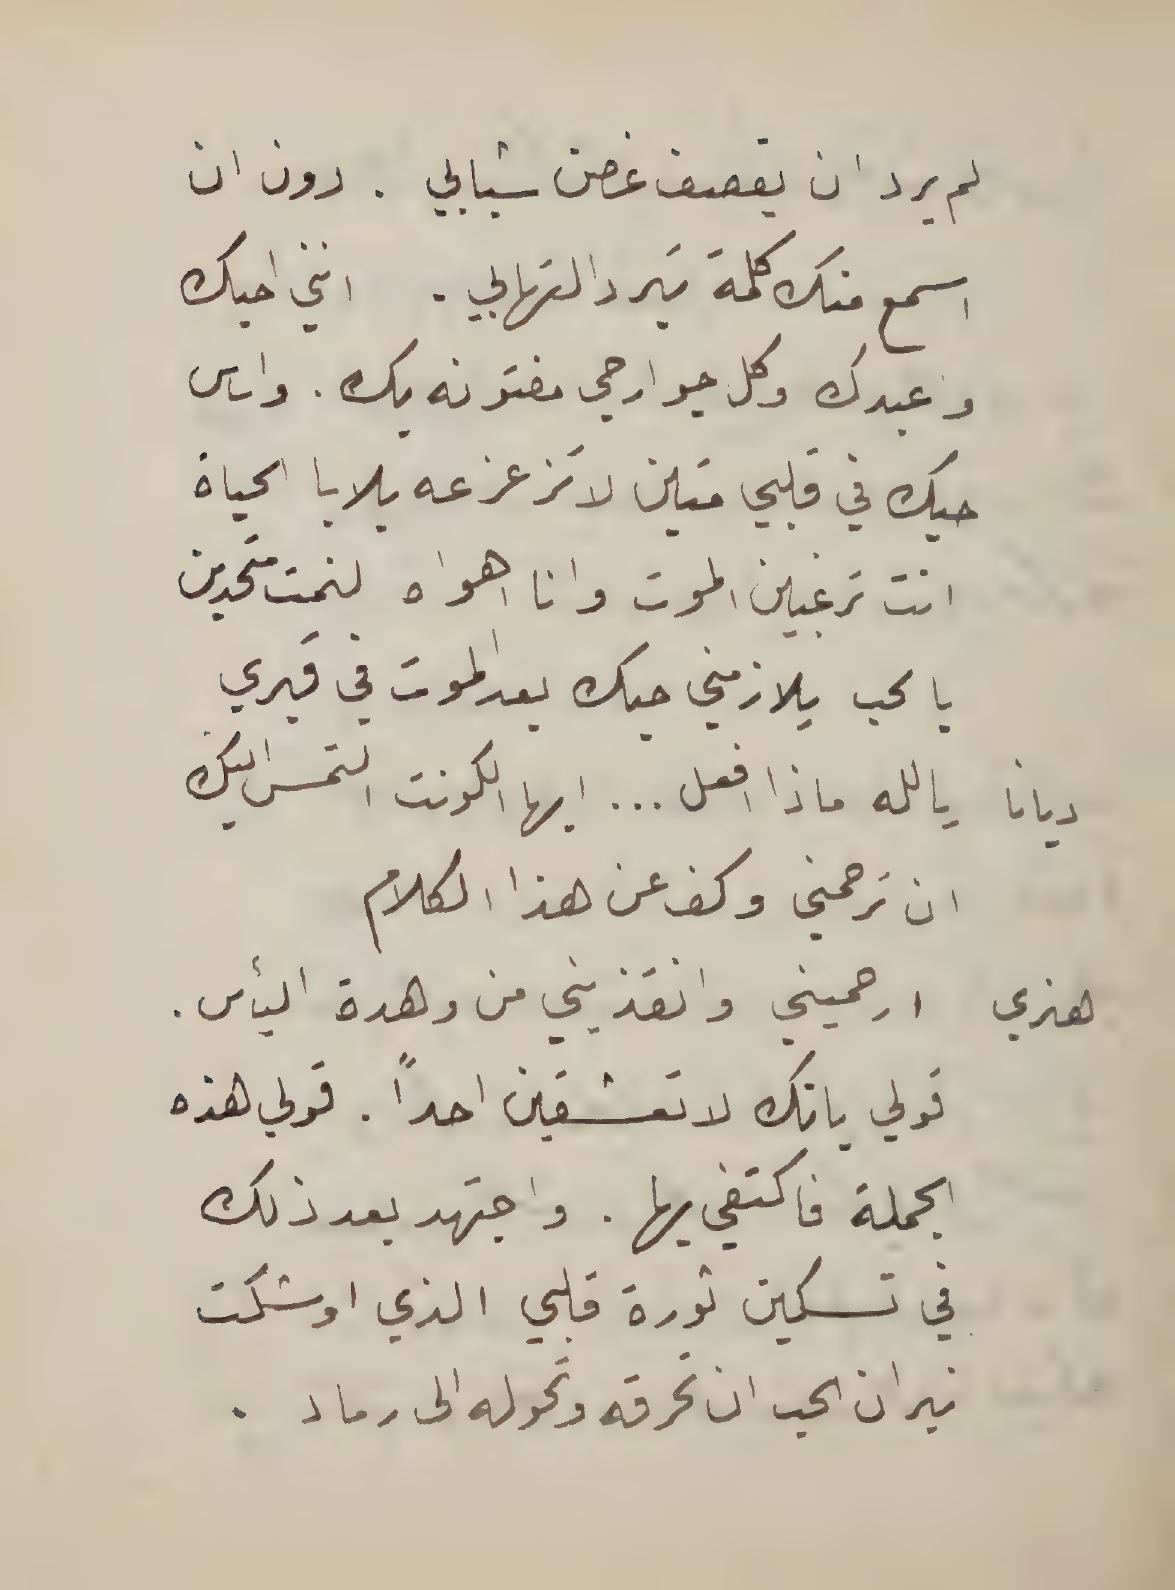 لم يرد ان يقصف غصن شبابي . دون ان
اسمع منك كلمة تبرد التهابي . انني احبك
واعبدك وكل جوارحي مفتونه بك . واساس
حبك في قلبي متين لا تزعزعه بلايا الحياة
انت ترغبين الموت وانا اهواه لنمت متحدين
بالحب يلازمني حبك بعد الموت في قبري
ديانا يالله ماذا افعل ... ايها الكونت التمس اليك
ان ترحمني وكف عن هذا الكلام
هنري ارحميني وانقذيني من وهدة اليأس .
قولي بانك لا تعشقين احداً . قولي هذه
الجملة فاكتفي بها . واجتهد بعد ذلك
في تسكين ثورة قلبي الذي اوشكت
نيران الحب ان تحرقه وتحوله الى رماد .